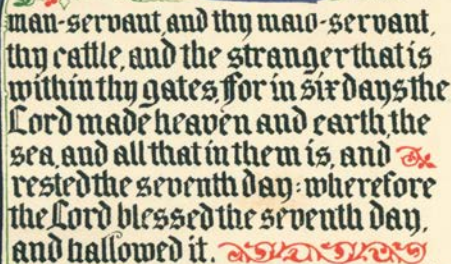 man-servant, and thy maid-servant,
thy cattle, and the stranger that is
within thy gates. For in six days the
Lord made heaven and earth, the
sea, and all that in them is, and
rested the seventh day: wherefore
the Lord blessed the seventh day,
and hallowed it.